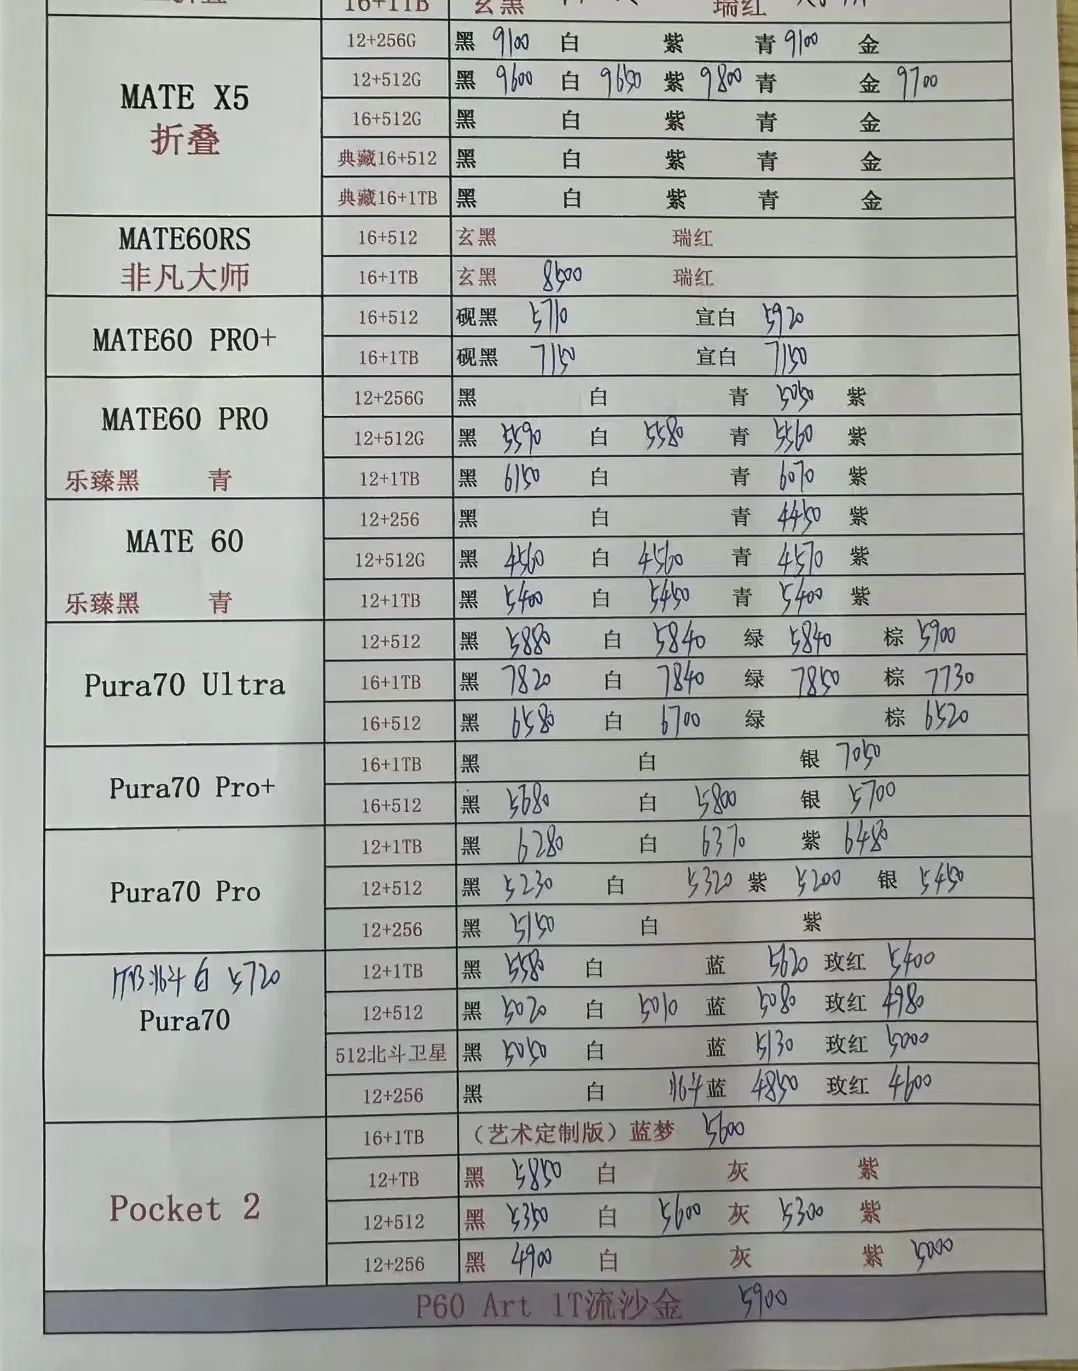 16+1TB 玄黑 瑞红
MATE X5
折叠
12+256G 黑 9100 白 紫 青 9100 金
12+512G 黑 9600 白 9650 紫 9800 青 金 9700
16+512G 黑 白 紫 青 金
典藏16+512 黑 白 紫 青 金
典藏16+1TB 黑 白 紫 青 金
MATE60RS
非凡大师
16+512 玄黑 瑞红
16+1TB 玄黑 8500 瑞红
MATE60 PRO+
16+512 砚黑 5710 宣白 5920
16+1TB 砚黑 7150 宣白 7150
MATE60 PRO
乐臻黑 青
12+256G 黑 白 青 5050 紫
12+512G 黑 5590 白 5580 青 5560 紫
12+1TB 黑 6150 白 青 6070 紫
MATE 60
乐臻黑 青
12+256 黑 白 青 4450 紫
12+512G 黑 4560 白 4560 青 4570 紫
12+1TB 黑 5400 白 5450 青 5400 紫
Pura70 Ultra
12+512 黑 5880 白 5840 绿 5840 棕 5900
16+1TB 黑 7820 白 7840 绿 7850 棕 7730
16+512 黑 6580 白 6700 绿 棕 6520
Pura70 Pro+
16+1TB 黑 白 银 7050
16+512 黑 5680 白 5800 银 5700
Pura70 Pro
12+1TB 黑 6280 白 6370 紫 6480
12+512 黑 5230 白 5320 紫 5200 银 5450
12+256 黑 5150 白 紫
1TB北斗白 5720
Pura70
12+1TB 黑 5580 白 蓝 5620 玫红 5400
12+512 黑 5020 白 5010 蓝 5080 玫红 4980
512北斗卫星 黑 5050 白 蓝 5130 玫红 5000
12+256 黑 白 北斗蓝 4850 玫红 4600
Pocket 2
16+1TB （艺术定制版）蓝梦 5600
12+TB 黑 5850 白 灰 紫
12+512 黑 5350 白 5600 灰 5300 紫
12+256 黑 4900 白 灰 紫 5000
P60 Art 1T流沙金 5900